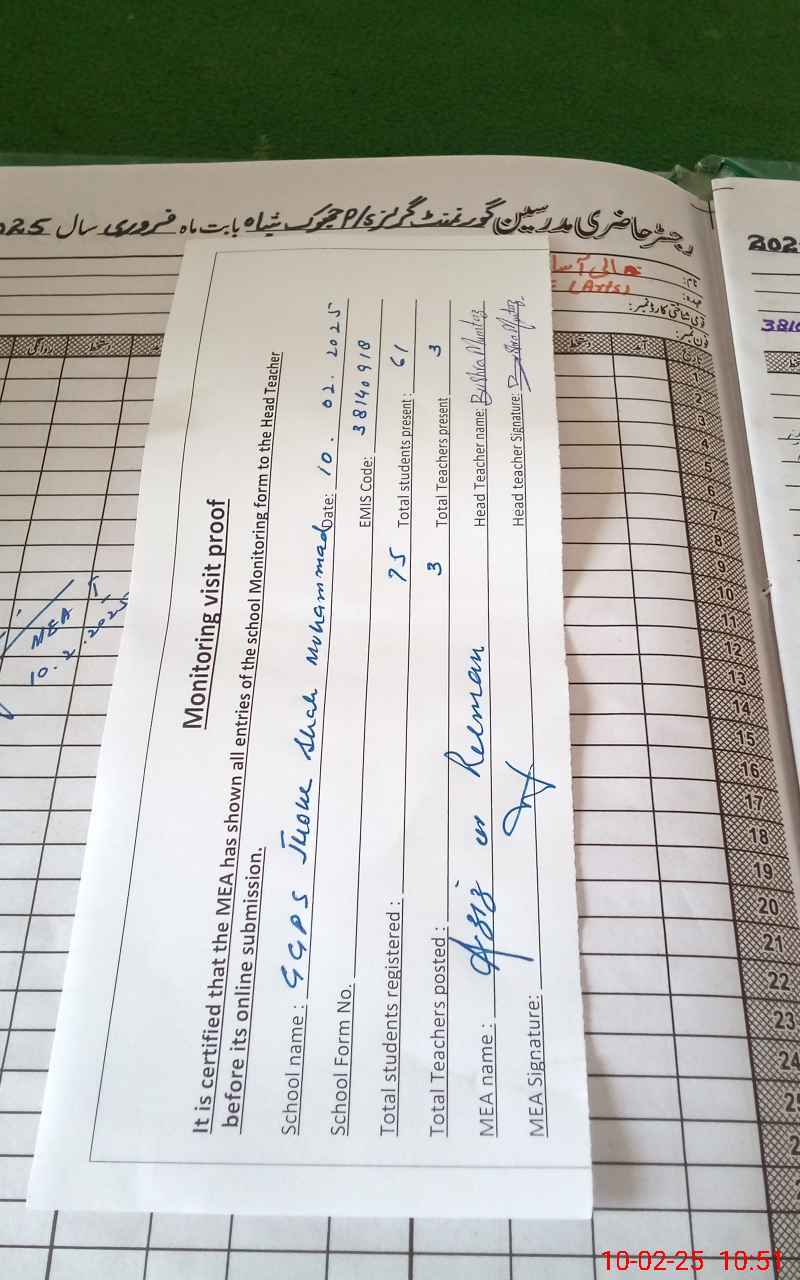 رجسٹر حاضری مدرسین گورنمنٹ گرلز P/S جھوک شاہ بابت ماہ فروری سال 2025
نام:
عہدہ:
(Arts)
فون نمبر:
آمد
دستخط
روانگی
دستخط
MEA
10.2.2025
Monitoring visit proof
It is certified that the MEA has shown all entries of the school Monitoring form to the Head Teacher
before its online submission.
School name : GGPS Jhoke Shah Muhammad Date: 10.02.2025
School Form No. EMIS Code: 38140918
Total students registered : 75 Total students present : 61
Total Teachers posted : 3 Total Teachers present 3
MEA name : Aziz ur Rehman Head Teacher name: Bushra Mumtaz
MEA Signature: Head teacher Signature: Bushra Mumtaz
1
2
3
4
5
6
7
8
9
10
11
12
13
14
15
16
17
18
19
20
21
22
23
24
202
3810
10-02-25 10:51